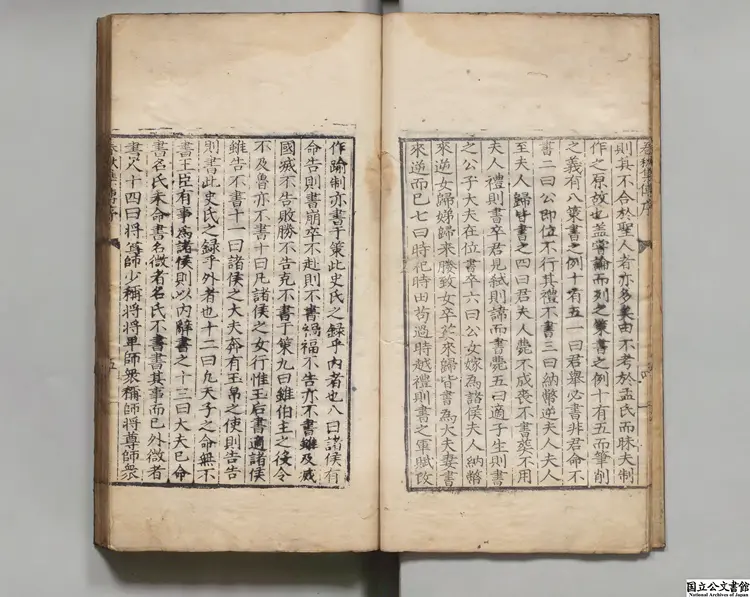 春秋集傳序
則其不合於聖人者亦多矣由不考於孟氏而昧夫制
作之原故也盖嘗論而列之策書之例十有五而筆削
之義有八策書之例十有五一曰君舉必書非君命不
書二曰公即位不行其禮不書三曰納幣逆夫人夫人
至夫人歸皆書之四曰君夫人薨不成喪不書葬不用
夫人禮則書卒君見弑則諱而書薨五曰適子生則書
之公子大夫在位書卒六曰公女嫁為諸侯夫人納幣
來逆女歸娣歸來媵致女卒葬來歸皆書為大夫妻書
來逆而已七曰時祀時田苟過時越禮則書之軍賦改
作踰制亦書于策此史氏之録乎內者也八曰諸侯有
命告則書崩卒不赴則不書禍福不告亦不書雖及滅
國滅不告敗勝不告克不書于策九曰雖伯主之役令
不及魯亦不書十曰凡諸侯之女行惟王后書適諸侯
雖告不書十一曰諸侯之大夫奔有玉帛之使則告告
則書此史氏之録乎外者也十二曰凡天子之命無不
書王臣有事為諸侯則以內辭書之十三曰大夫已命
書名氏未命書名微者名氏不書書其事而已外微者
書人十四曰將尊師少稱將將卑師衆稱師將尊師衆
春秋集傳序
五
国立公文書館
National Archives of Japan